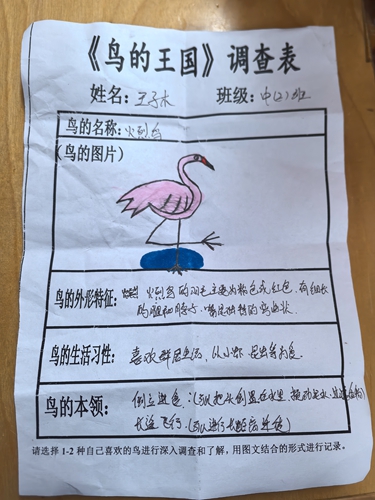 《鸟的王国》调查表
姓名：王子木 班级：中(2)班
鸟的名称：火烈鸟
(鸟的图片)
鸟的外形特征： 火烈鸟的羽毛主要为粉色或红色，有细长
的腿和脖子，嘴是独特的弯曲状
鸟的生活习性：喜欢群居生活，以小虾、昆虫等为食。
鸟的本领：倒立进食：(可以把头倒置在水里
长途飞行：(可以进行长距离
请选择 1-2 种自己喜欢的鸟进行深入调查和了解，用图文结合的形式进行记录。